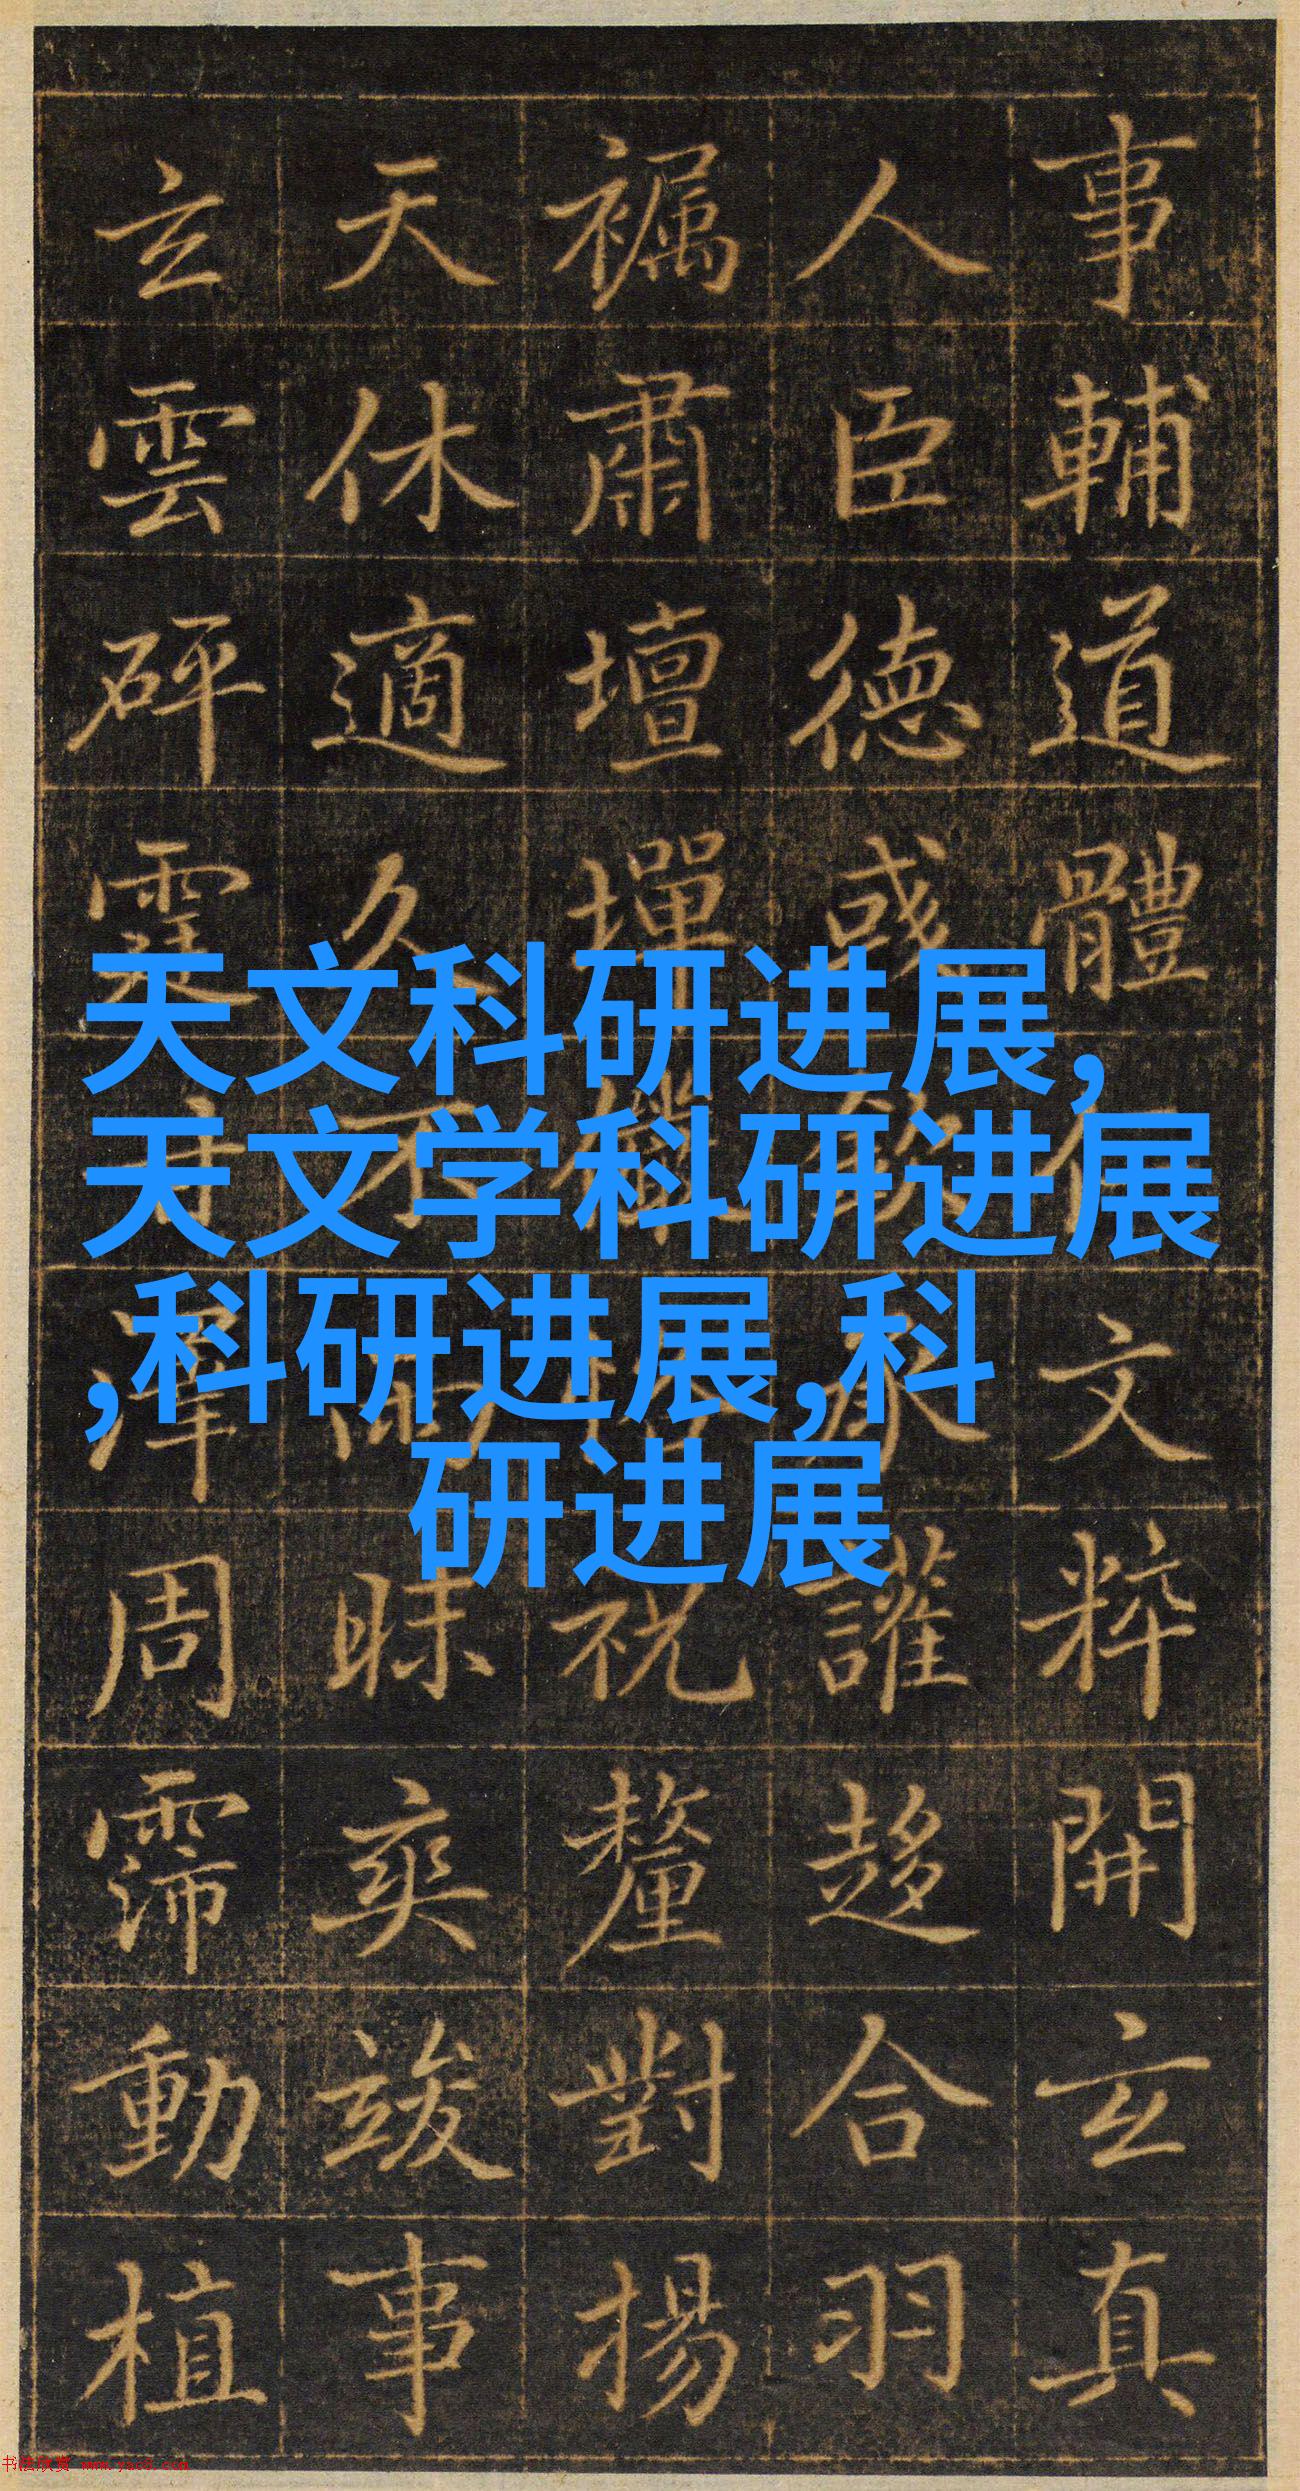 天文科研进展,
天文学科研进展
,科研进展,科
研进展
事輔道體文粹開玄真
人臣德趍合羽
肅壇墠祝釐對揚
天休適久不雨昧爽竣事
玄雲砰霆澤周霈動植
书法欣赏 www.yac8.com